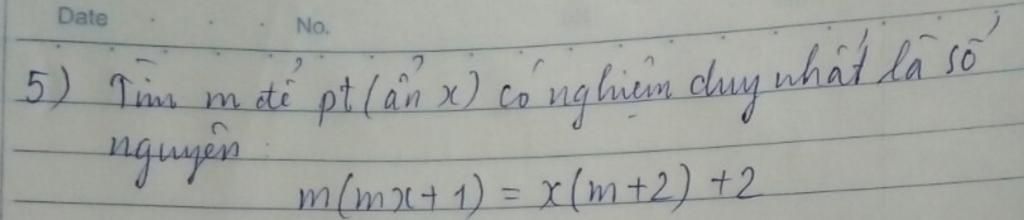 Date No.
5) Tìm m để pt (ẩn x) có nghiệm duy nhất là số
nguyên:
m(mx+1) = x(m+2) +2